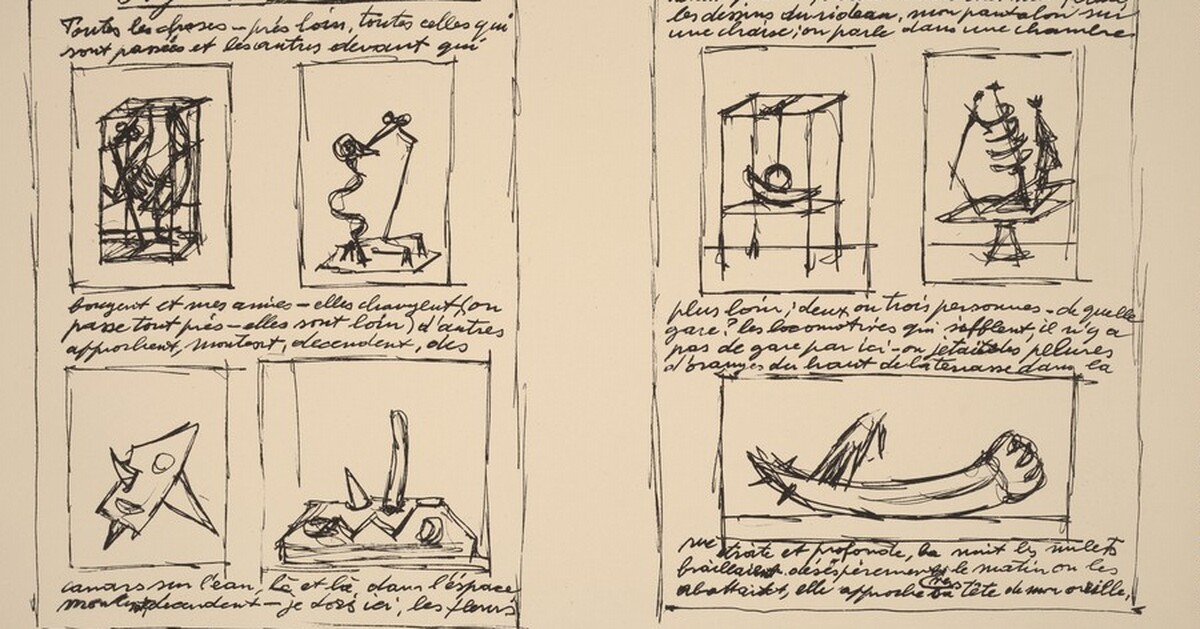 Toutes les choses - près loin, toutes celles qui
sont passées et les autres devant qui
bougent et mes amies - elles changent (on
passe tout près - elles sont loin) d'autres
approchent, montent, decendent, des
canars sur l'eau, là et là, dans l'éspace
decendent - je dors ici, les fleurs
les dessins du rideau, mon pantalon sur
une chaise; on parle dans une chambre
plus loin; deux ou trois personnes - de quelle
gare? les locomotives qui sifflent, il n'y a
pas de gare par ici - on jetait des plures
d'oranges du haut de la terrasse dans la
rue étroite et profonde, la nuit les mulets
braillaient déséspérement, le matin on les
abattait, elle approche sa tête de mon oreille,